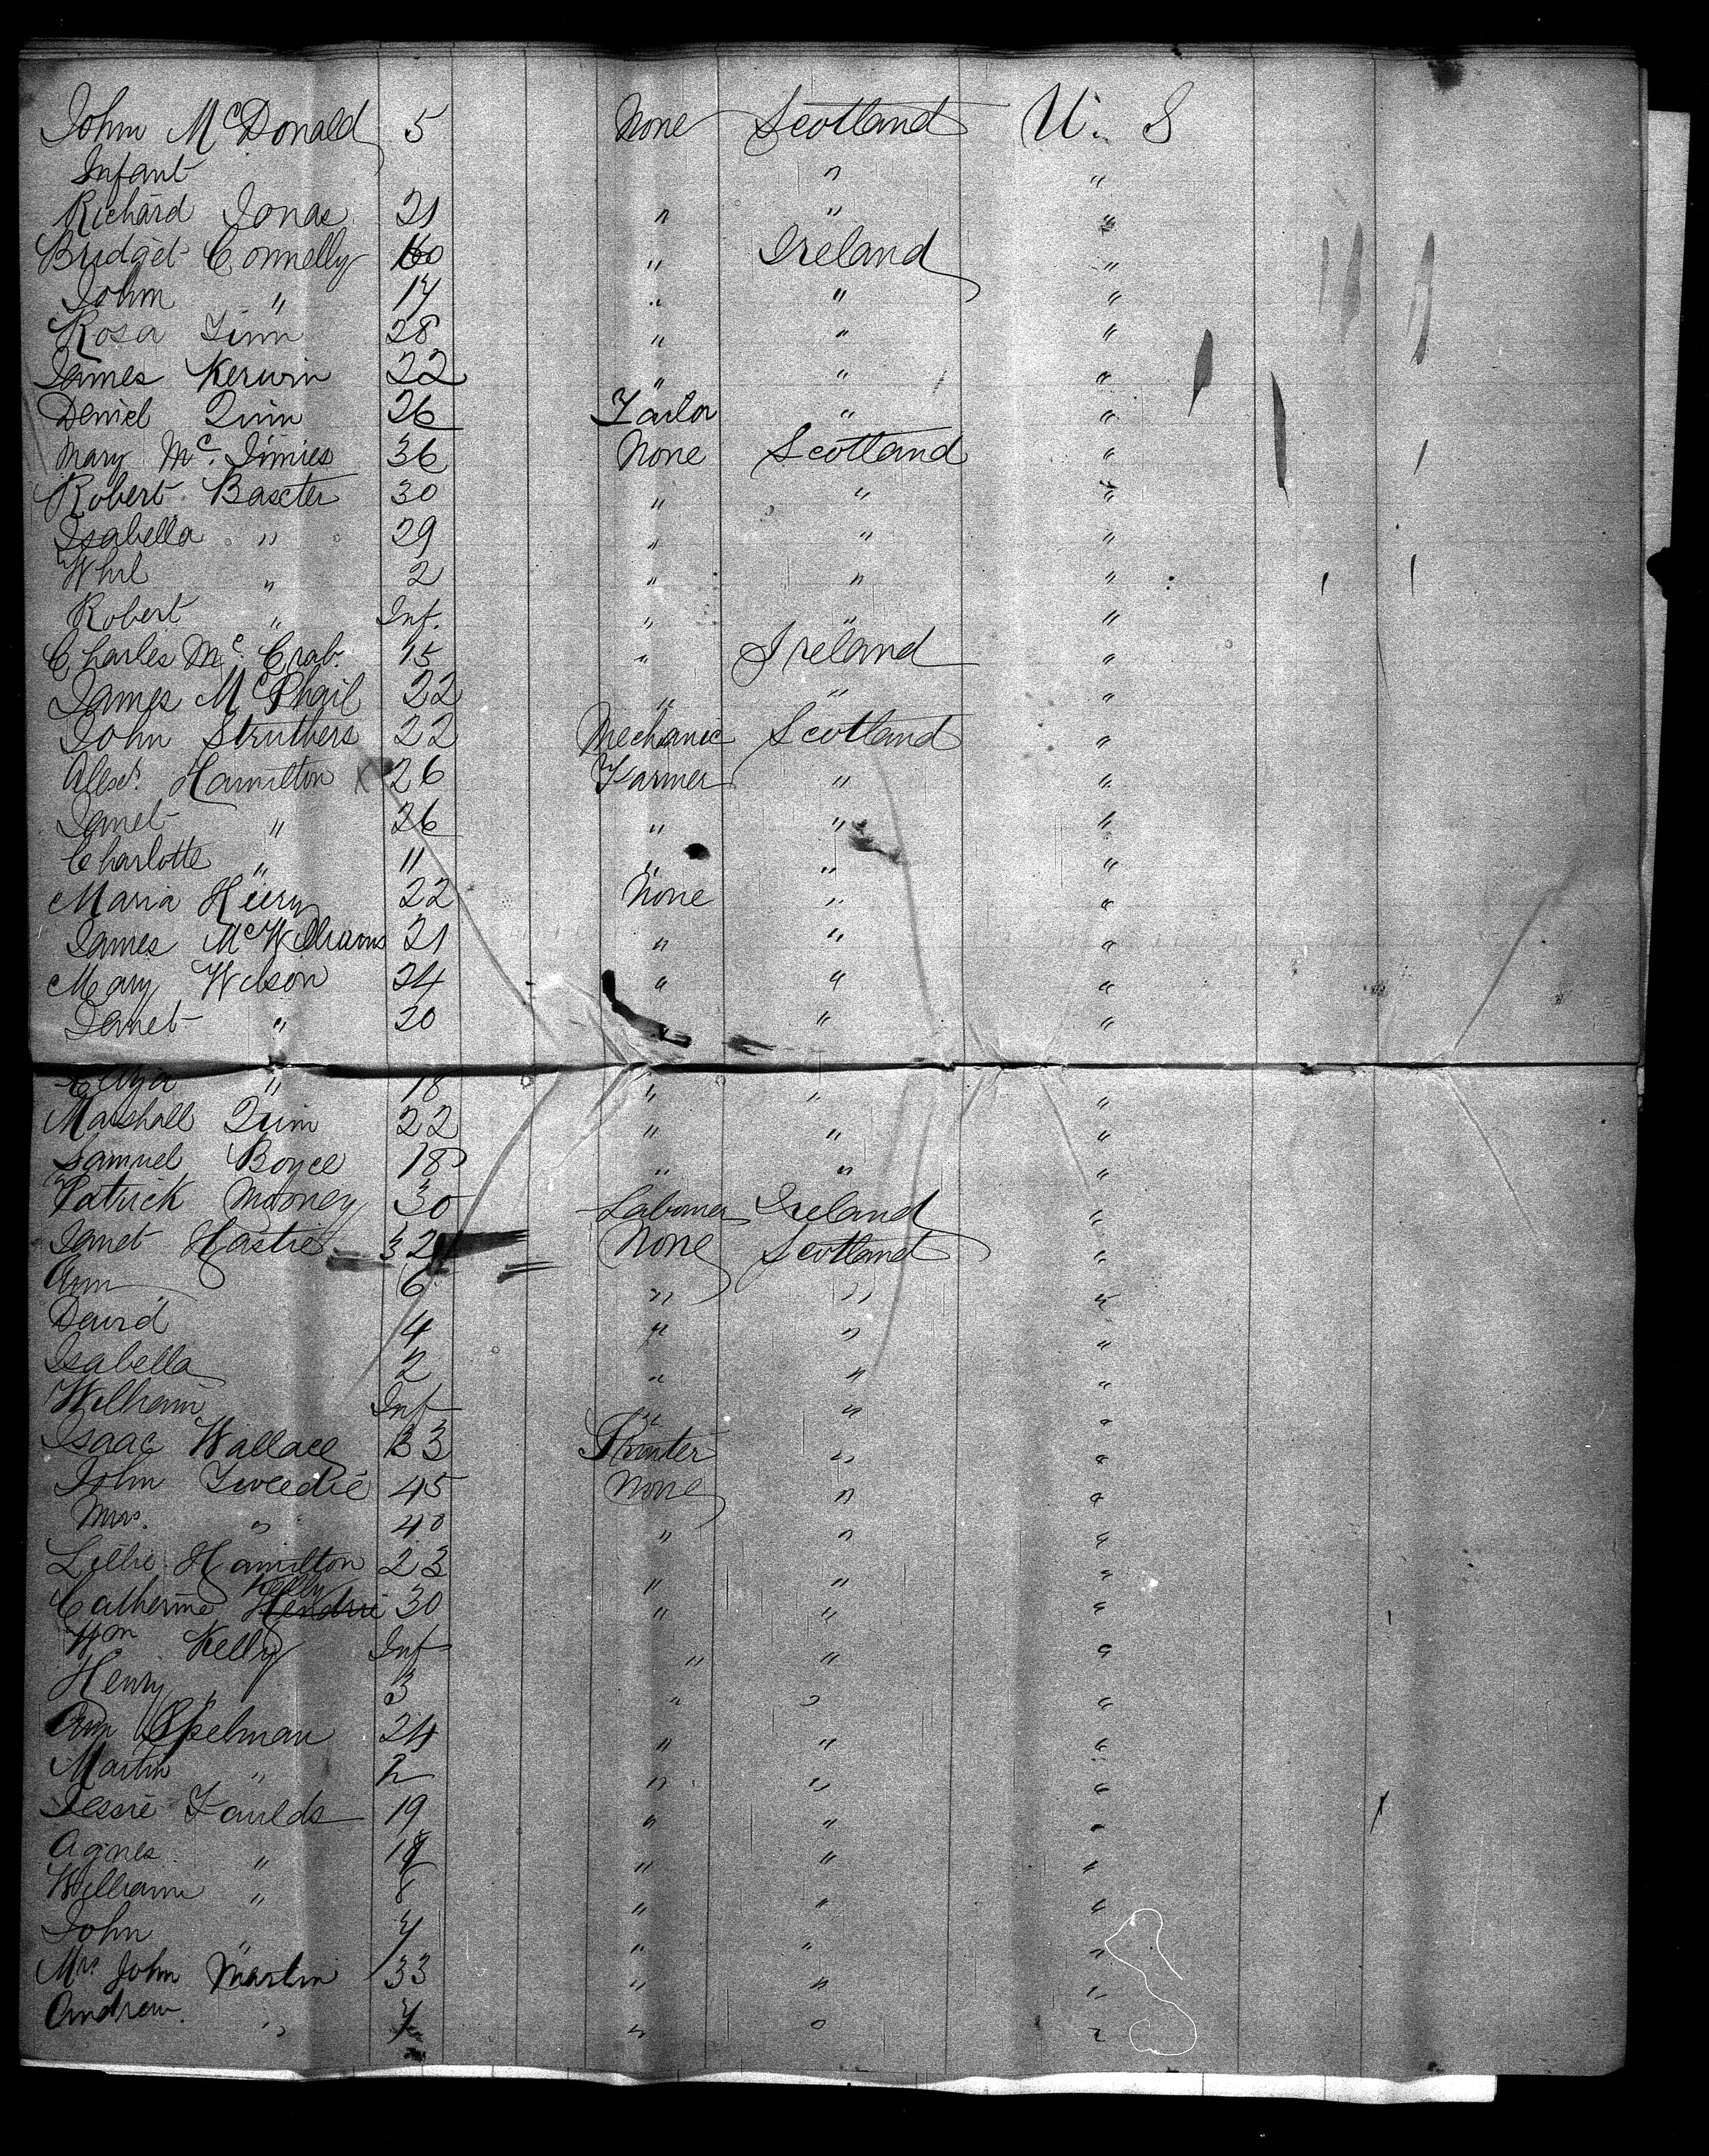 John McDonald 5 None Scotland U. S
Infant " "
Richard Jonas 21 " " "
Bridget Connelly 60 " Ireland "
John " 17 " " "
Rosa Finn 28 " " "
James Kerwin 22 " " "
Daniel Quin 26 Tailor " "
Mary Mc. 36 None Scotland "
Robert Baxter 30 " " "
Isabella " 29 " " "
" 2 " " "
Robert " Inf. " " "
Charles Mc. Crab. 15 " Ireland "
James McPhail 22 " " "
John Struthers 22 Mechanic Scotland "
Alexr. Hamilton X 26 Farmer " "
Janet " 26 " " "
Charlotte " 11 " " "
Maria 22 None " "
James McWilliams 21 " " "
Mary Wilson 24 " " "
Janet " 20 " "
Eliza " 18 " " "
Marshall Quin 22 " " "
Samuel Boyce 18 " " "
Patrick Mooney 30 Labourer Ireland "
Janet Hastie 32 None Scotland "
Ann 6 " " "
David 4 " " "
Isabella 2 " " "
William Inf " " "
Isaac Wallace 33 Printer " "
John Tweedie 45 None " "
Mrs. " 40 " " "
Lillie Hamilton 23 " " "
Kelly
Catherine Hendrie 30 " " "
Wm Kelly Inf " " "
Henry " 3 " " "
Ann Spelman 24 " " "
Martin " 2 " " "
Jessie Faulds 19 " " "
Agnes " " " "
William " 8 " " "
John " 7 " " "
Mrs John Martin 33 " " "
Andrew " 7 " " "